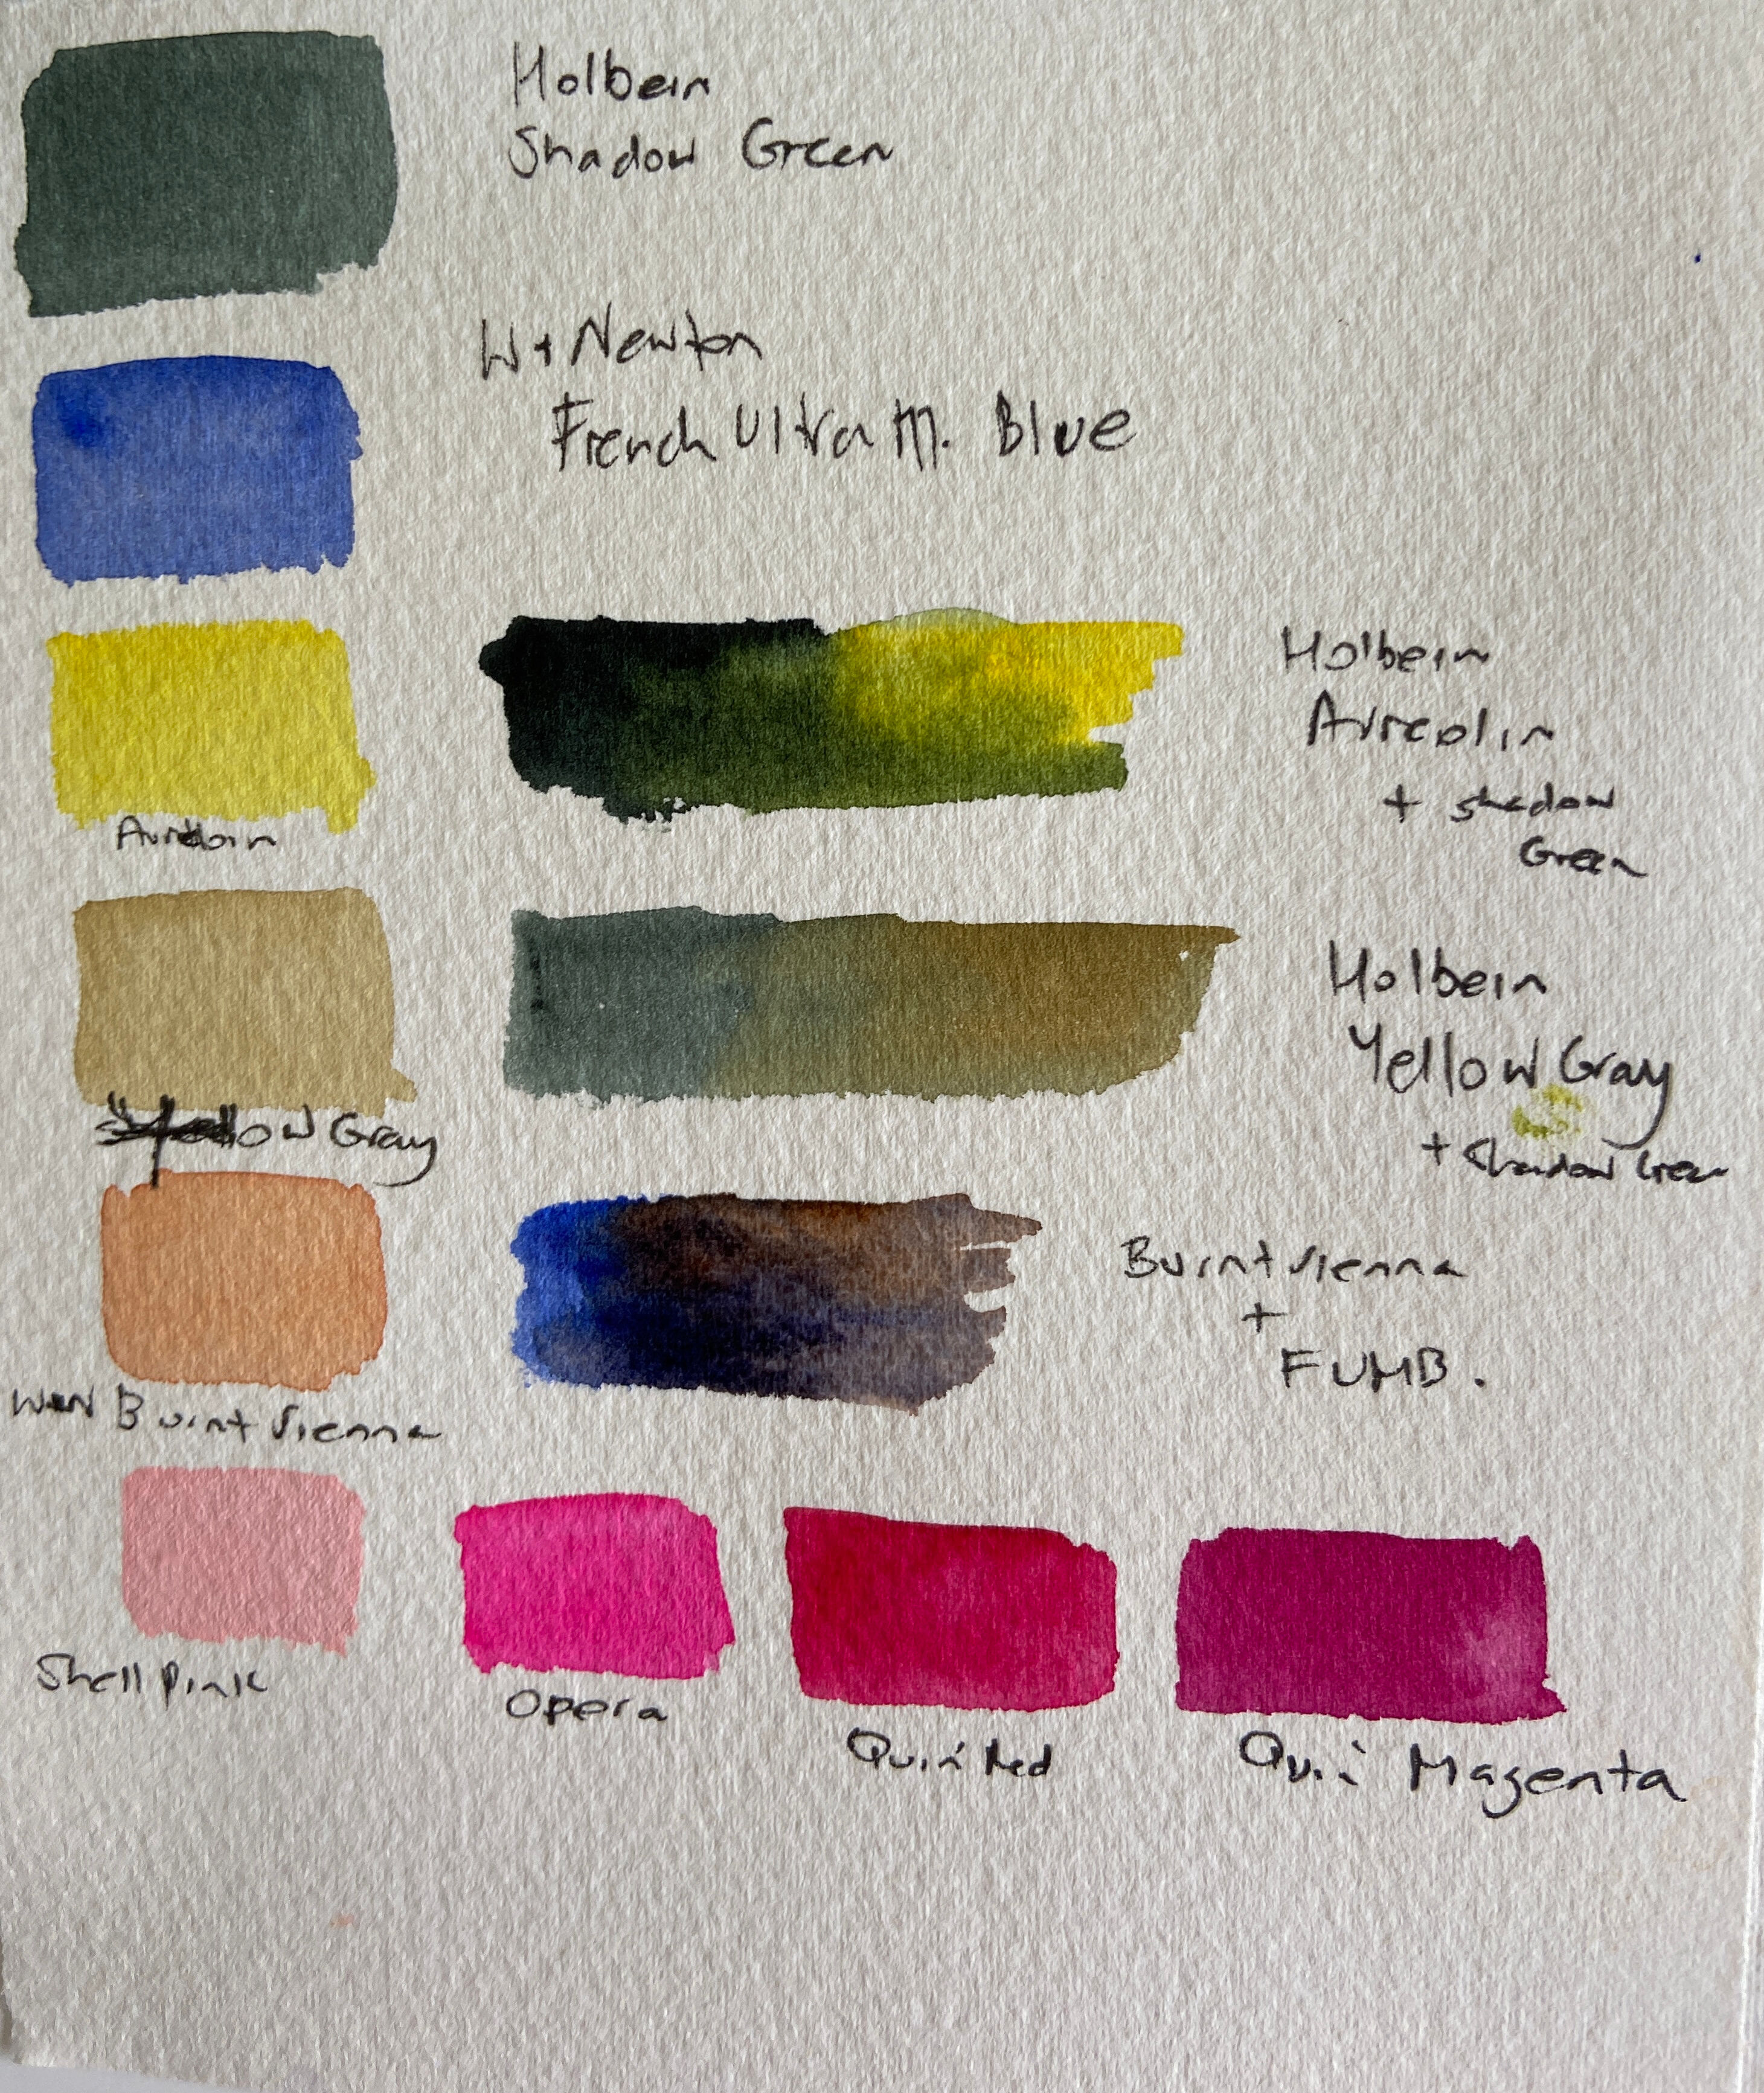 Holbein
Shadow Green
W + Newton
French Ultra M. Blue
Aureolin
Holbein
Aureolin
+ Shadow
Green
Yellow Gray
Holbein
Yellow Gray
+ Shadow Green
W&N Burnt Sienna
Burnt Sienna
+
FUMB.
Shell Pink
Opera
Quin Red
Qui: Magenta